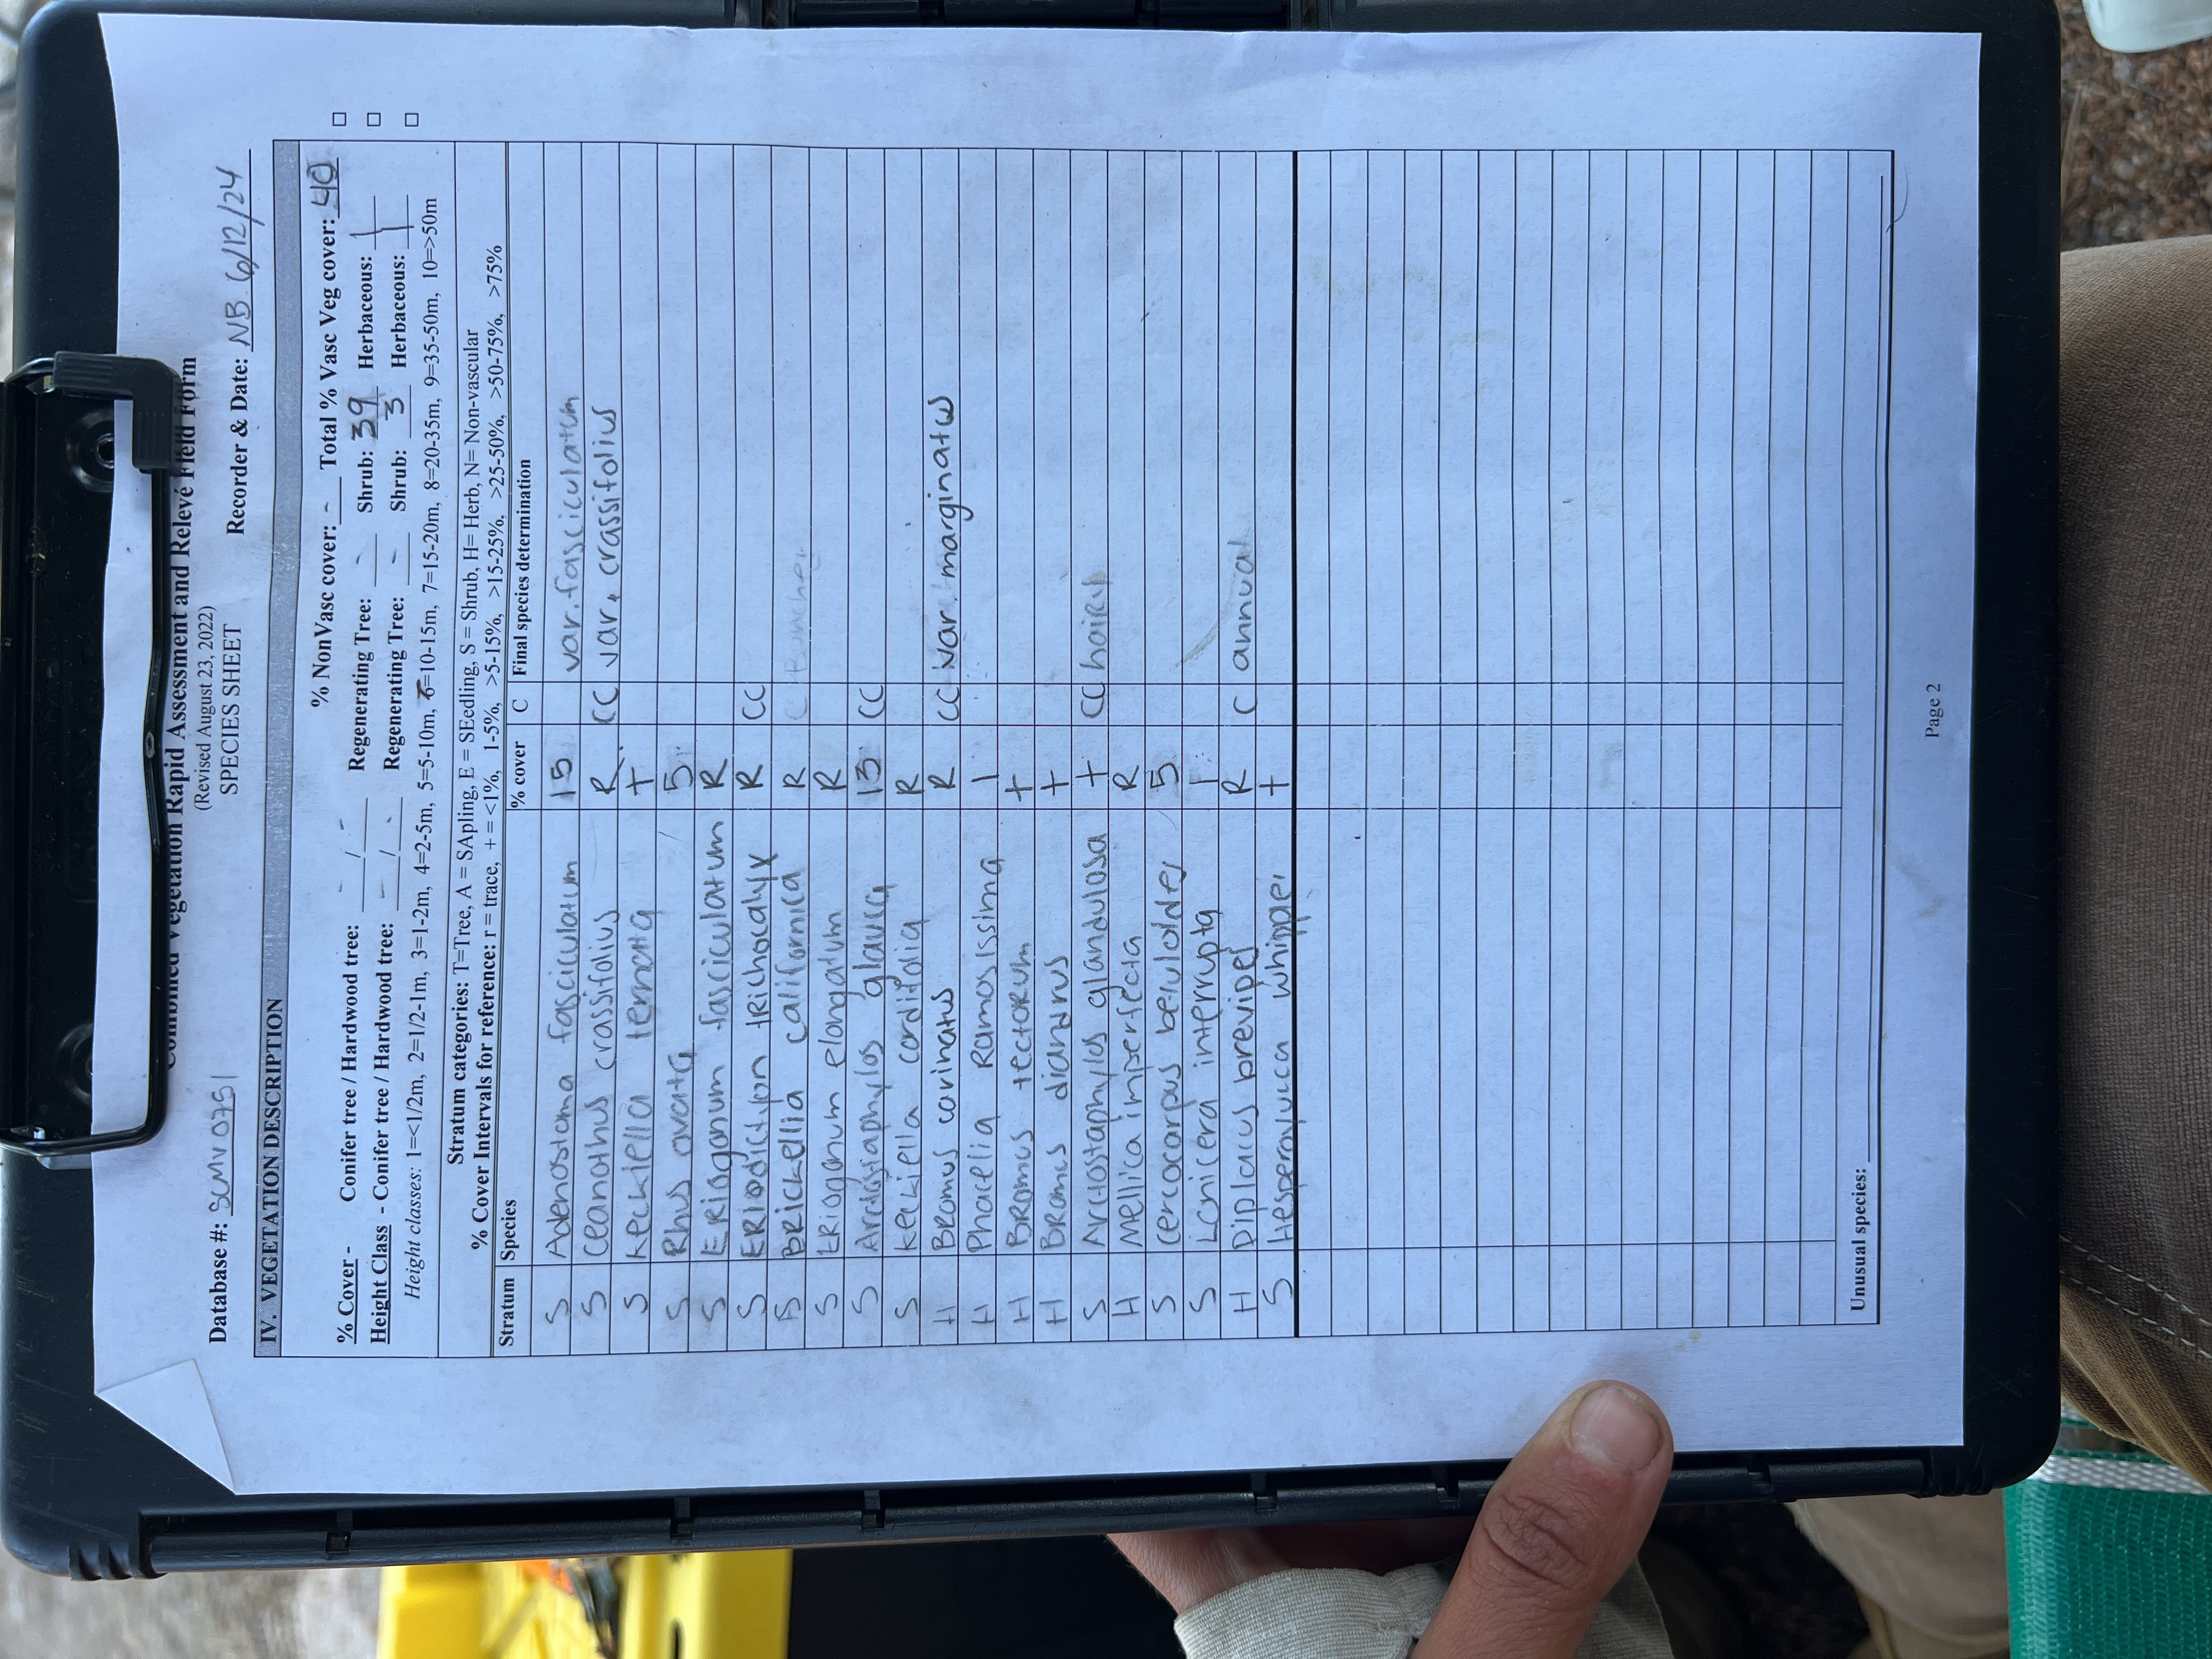 Combined Vegetation Rapid Assessment and Relevé Field Form
(Revised August 23, 2022)
SPECIES SHEET
Database #: SCMV0751 Recorder & Date: NB 6/12/24
IV. VEGETATION DESCRIPTION
% NonVasc cover: - Total % Vasc Veg cover: 40
% Cover - Conifer tree / Hardwood tree: - / - Regenerating Tree: - Shrub: 39 Herbaceous: 1
Height Class - Conifer tree / Hardwood tree: - / - Regenerating Tree: - Shrub: 3 Herbaceous: 1
Height classes: 1=<1/2m, 2=1/2-1m, 3=1-2m, 4=2-5m, 5=5-10m, 6=10-15m, 7=15-20m, 8=20-35m, 9=35-50m, 10=>50m
Stratum categories: T=Tree, A = SApling, E = SEedling, S = Shrub, H= Herb, N= Non-vascular
% Cover Intervals for reference: r = trace, + = <1%, 1-5%, >5-15%, >15-25%, >25-50%, >50-75%, >75%
Stratum Species % cover C Final species determination
S Adenostoma fasciculatum 15 var. fasciculatum
S Ceanothus crassifolius R CC var. crassifolius
S Keckiella ternata +
S Rhus ovata 5
S Eriogonum fasciculatum R
S Eriodictyon trichocalyx R CC
S Brickellia californica R C
S Eriogonum elongatum R
S Arctostaphylos glauca 13 CC
S Keckiella cordifolia R
H Bromus carinatus R CC var. marginatus
H Phacelia Ramosissima 1
H Bromus tectorum +
H Bromus diandrus +
S Arctostaphylos glandulosa + CC hairy
H Mellica imperfecta R
S Cercocarpus betuloides 5
S Lonicera interrupta 1
H Diplacus brevipes R C annual
S Hesperoyucca whipplei +
Unusual species:
Page 2